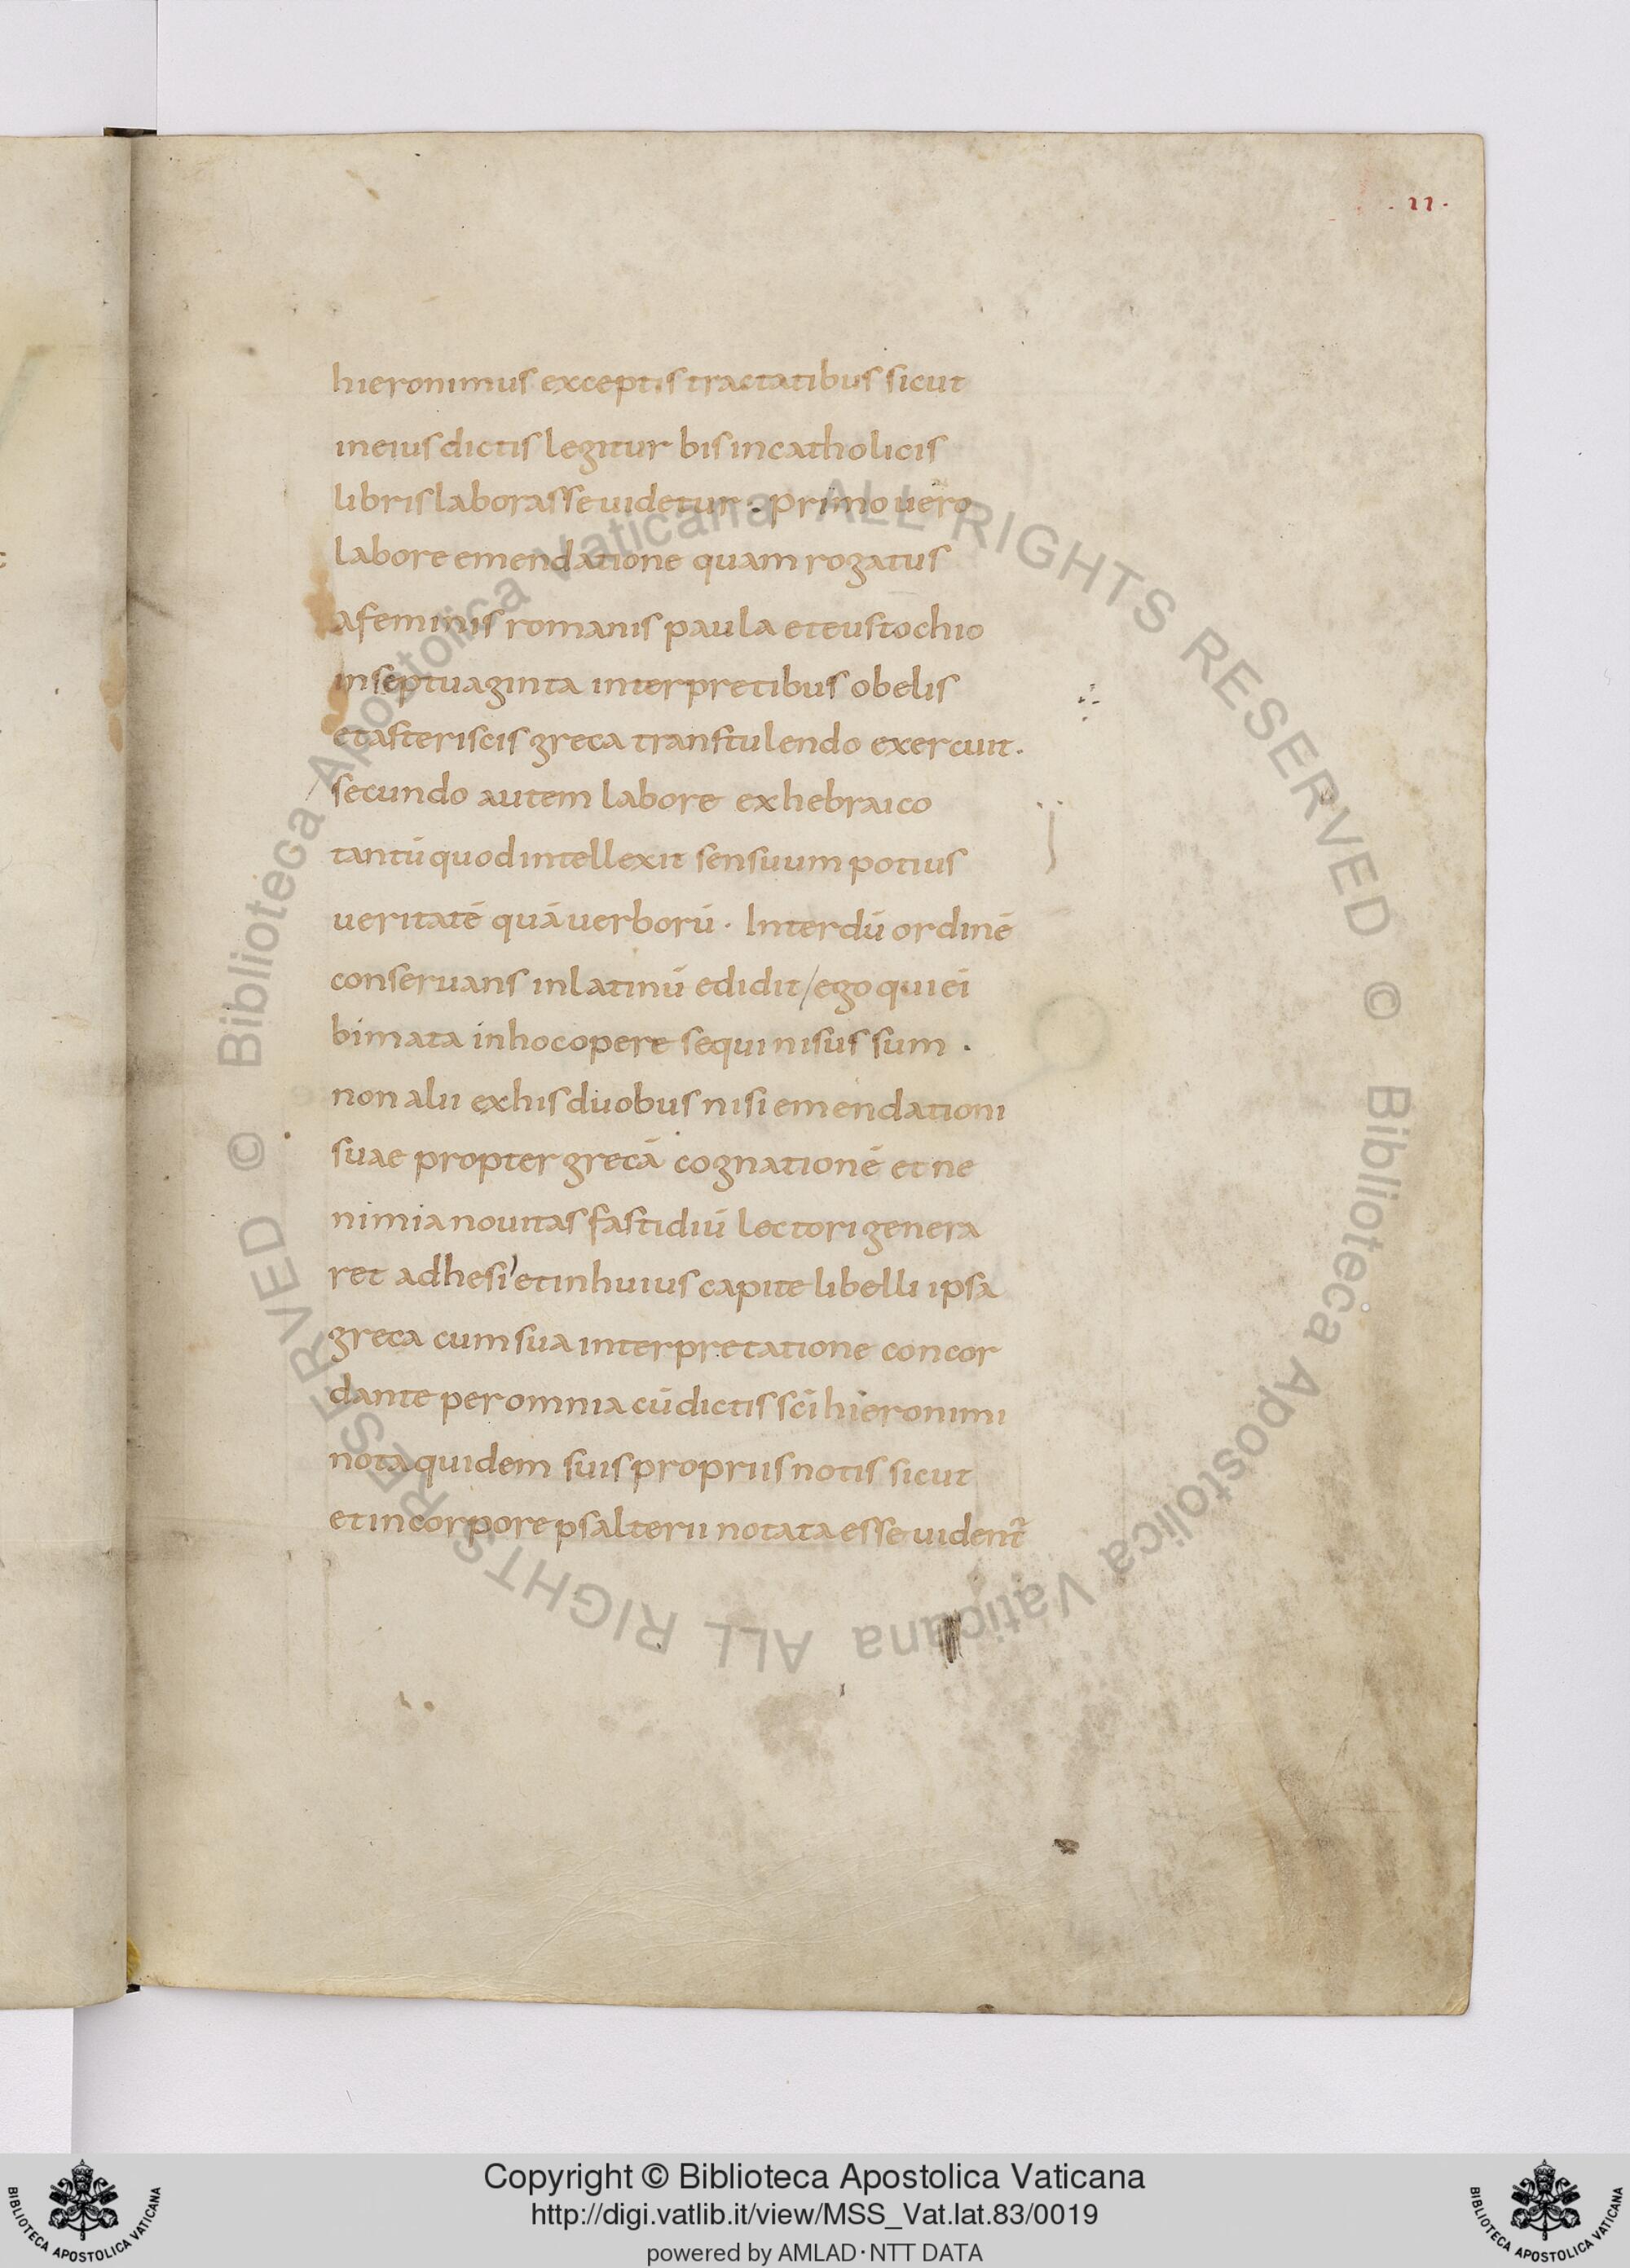 . 11 .
hieronimus exceptis tractatibus sicut
ineius dictis legitur bis incatholicis
libris laborasse uidetur . primo uero
labore emendatione quam rogatus
afeminis romanis paula eteustochio
inseptuaginta interpretibus obelis
etasteriscis greca transtulendo exercuit .
secundo autem labore exhebraico
tantū quod intellexit sensuum potius
ueritatē quā uerborū . Interdū ordinē
conseruans inlatinū edidit / ego qui ei
bimata inhoc opere sequi nisus sum .
non alii exhis duobus nisi emendationi
suae propter grecā cognationē et ne
nimia nouitas fastidiū lectori genera
ret adhesi' etinhuius capite libelli ipsa
greca cum sua interpretatione concor
dante per omnia cū dictis sc̄i hieronimi
nota quidem suis propriis notis sicut
etincorpore psalterii notata esse uident̄
© Biblioteca Apostolica Vaticana ALL RIGHTS RESERVED
© Biblioteca Apostolica Vaticana ALL RIGHTS RESERVED
Copyright © Biblioteca Apostolica Vaticana
http://digi.vatlib.it/view/MSS_Vat.lat.83/0019
powered by AMLAD·NTT DATA
BIBLIOTECA APOSTOLICA VATICANA
BIBLIOTECA APOSTOLICA VATICANA